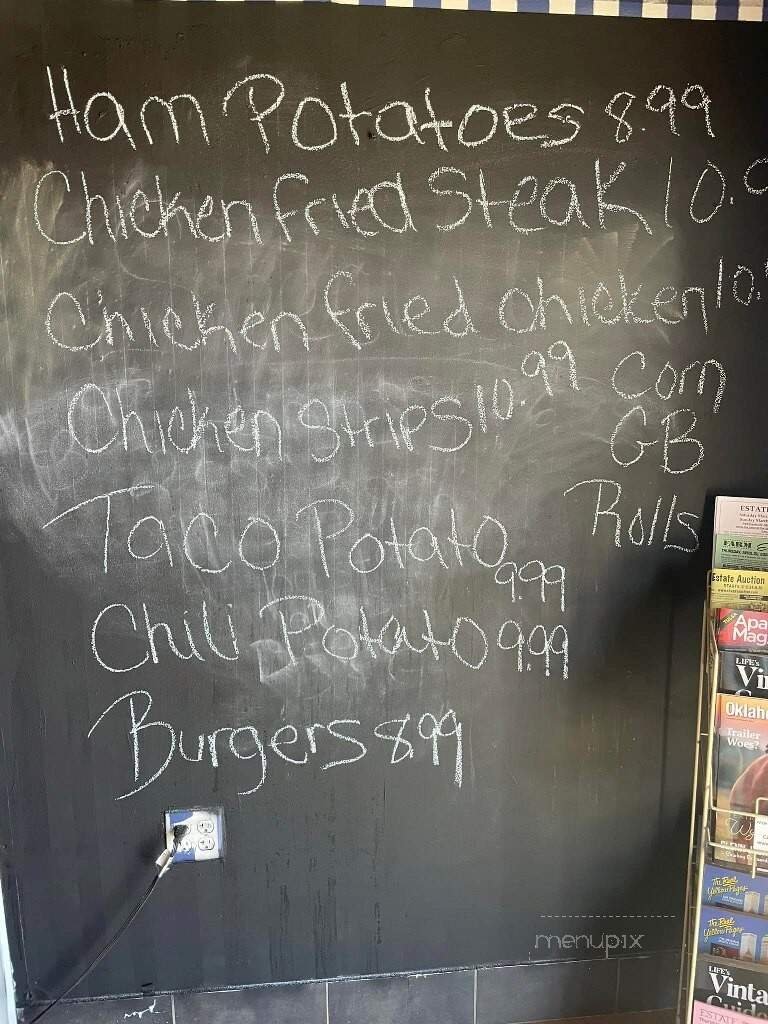 Ham Potatoes 8.99
Chicken fried Steak 10.9
Chicken fried chicken 10.
Chicken Strips 10.99
Corn
GB
Rolls
Taco Potato 9.99
Chili Potato 9.99
Burgers 8.99
menupix
ESTAT
FARM
Estate Auction
Apa
Mag
LIFE'S
Vin
Oklah
Trailer
Woes?
The Real
Yellow Pages
The Real
Yellow Pages
LIFE'S
Vinta
Guide
ESTATE